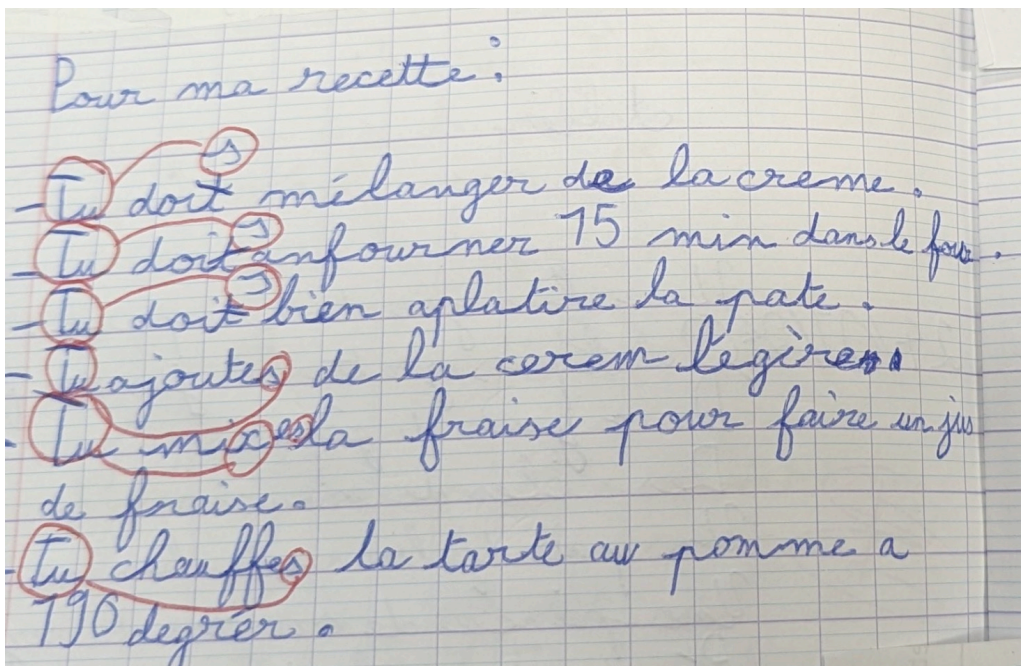 Pour ma recette :
- Tu doit s mélanger de la creme.
- Tu doit s anfourner 15 min dans le four.
- Tu doit s bien aplatire la pate.
- Tu ajoutes de la cerem legère
- Tu mixes la fraise pour faire un jus
de fraise.
- Tu chauffes la tarte au pomme a
190 degrér.